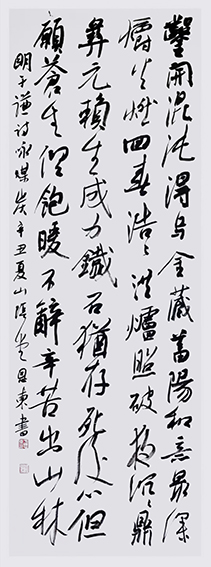 鑿開混沌得烏金藏蓄陽和意最深
爝火燃回春浩浩洪爐照破夜沉沉鼎
彝元賴生成力鐵石猶存死後心但
願蒼生俱飽暖不辭辛苦出山林
明于謙詩詠煤炭辛丑夏山陰恩東書